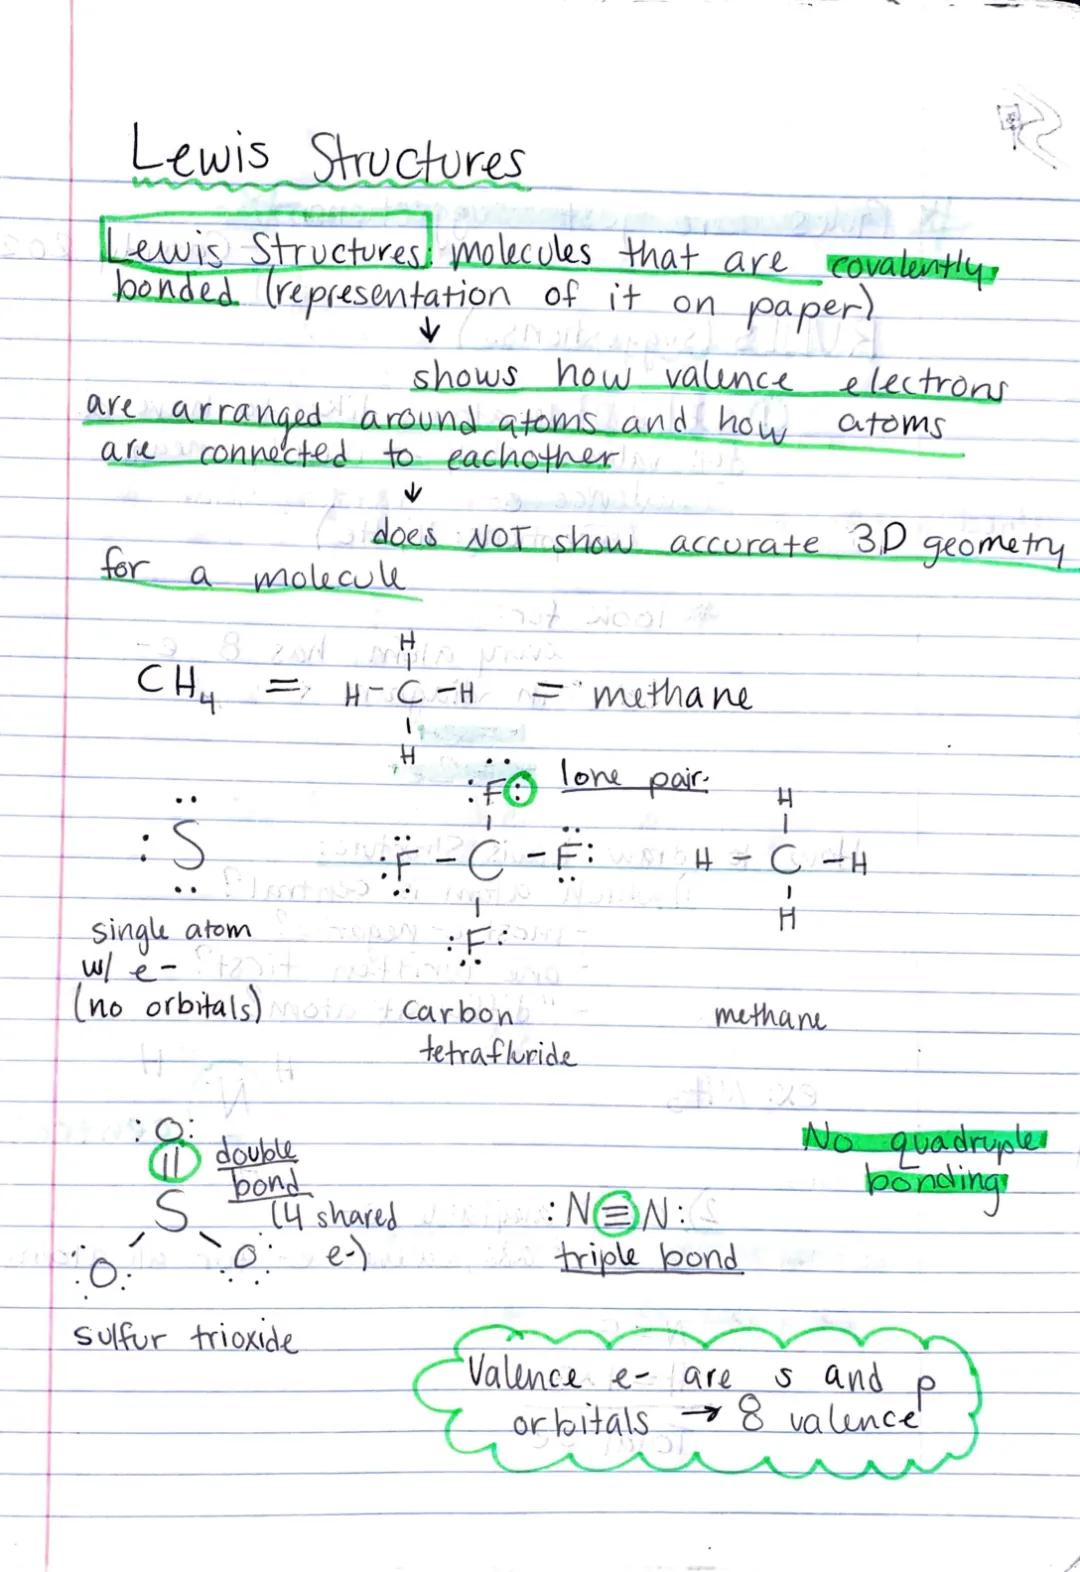 Lewis Structures
Lewis Structures: molecules that are covalently
bonded (representation of it on paper)
↓
shows how valence electrons
are arranged around atoms and how atoms
are connected to eachother
↓
does NOT show accurate 3D geometry
for a molecule
H
CH4 = H-C-H = methane
H
:F: lone pair
H
:S
:F-C-F: H-C-H
:F:
H
single atom
w/ e-
(no orbitals)
carbon
tetrafluride
methane
:O:
double
bond
(4 shared
e-)
S
:O: O:
sulfur trioxide
:N≡N:
triple bond
No quadruple
bonding
Valence e- are s and p
orbitals → 8 valence